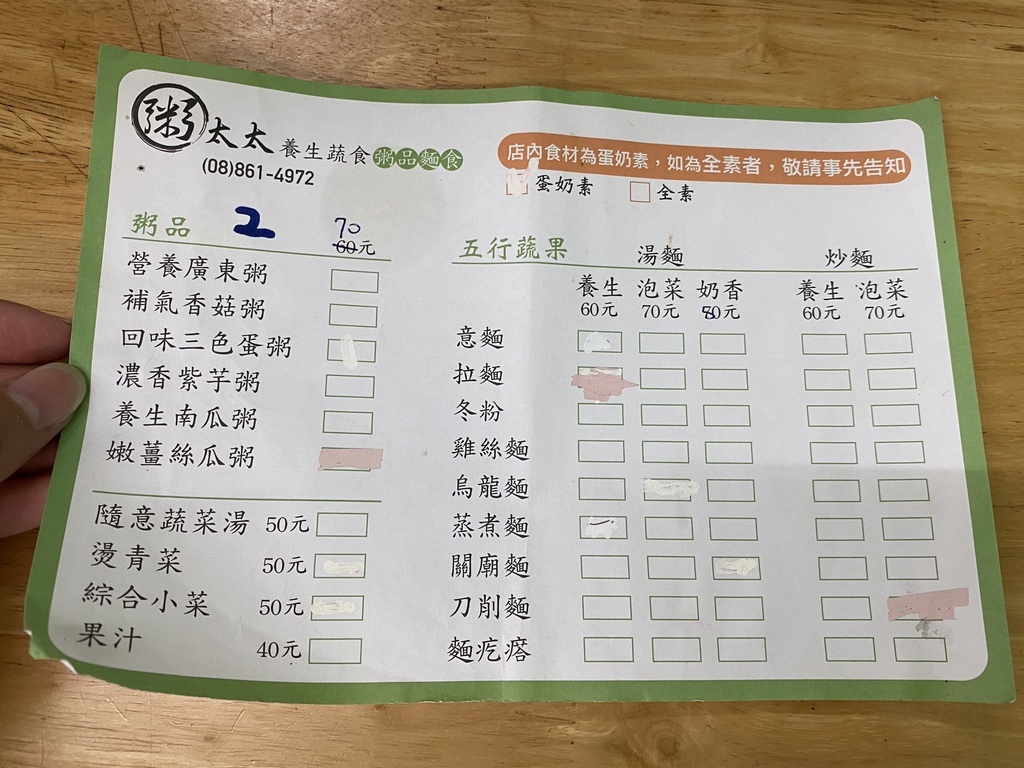 粥太太 養生蔬食 粥品麵食
(08)861-4972
店內食材為蛋奶素，如為全素者，敬請事先告知
蛋奶素 全素
粥品 2 70
60元
營養廣東粥
補氣香菇粥
回味三色蛋粥
濃香紫芋粥
養生南瓜粥
嫩薑絲瓜粥
隨意蔬菜湯 50元
燙青菜 50元
綜合小菜 50元
果汁 40元
五行蔬果 湯麵 炒麵
養生 泡菜 奶香 養生 泡菜
60元 70元 80元 60元 70元
意麵
拉麵
冬粉
雞絲麵
烏龍麵
蒸煮麵
關廟麵
刀削麵
麵疙瘩